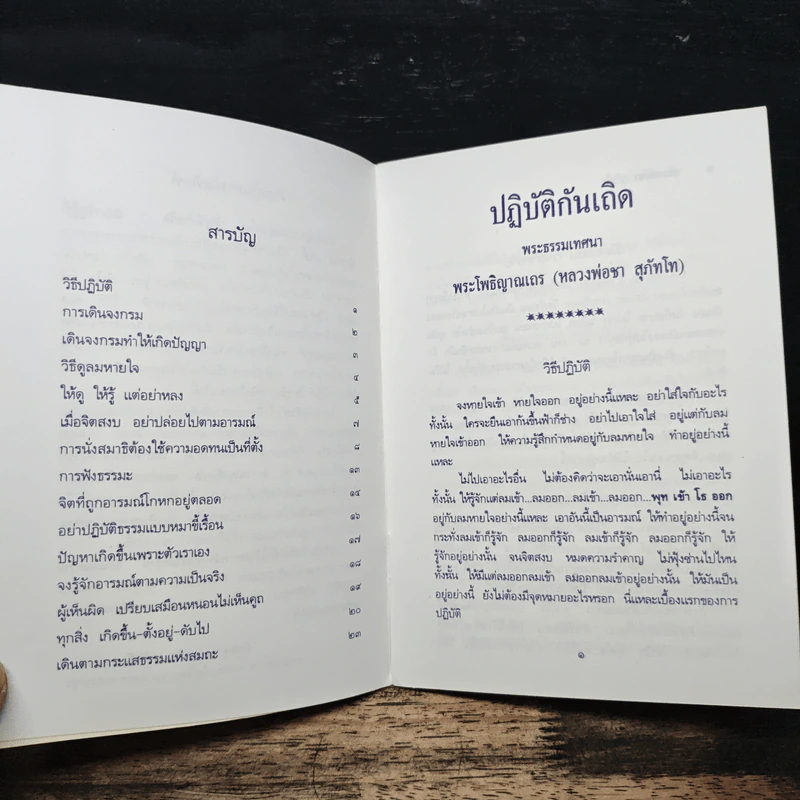 สารบัญ
วิธีปฏิบัติ
การเดินจงกรม ๑
เดินจงกรมทำให้เกิดปัญญา ๒
วิธีดูลมหายใจ ๓
ให้ดู ให้รู้ แต่อย่าหลง ๔
เมื่อจิตสงบ อย่าปล่อยไปตามอารมณ์ ๕
การนั่งสมาธิต้องใช้ความอดทนเป็นที่ตั้ง ๗
การฟังธรรมะ ๘
จิตที่ถูกอารมณ์โกหกอยู่ตลอด ๑๓
อย่าปฏิบัติธรรมแบบหมาขี้เรื้อน ๑๔
ปัญหาเกิดขึ้นเพราะตัวเราเอง ๑๖
จงรู้จักอารมณ์ตามความเป็นจริง ๑๗
ผู้เห็นผิด เปรียบเสมือนหนอนไม่เห็นคูถ ๑๘
ทุกสิ่ง เกิดขึ้น-ตั้งอยู่-ดับไป ๑๙
เดินตามกระแสธรรมแห่งสมถะ ๒๐
๒๓
ปฏิบัติกันเถิด
พระธรรมเทศนา
พระโพธิญาณเถร (หลวงพ่อชา สุภัทโท)
********
วิธีปฏิบัติ
จงหายใจเข้า หายใจออก อยู่อย่างนี้แหละ อย่าใส่ใจกับอะไร
ทั้งนั้น ใครจะยืนเอาก้นขึ้นฟ้าก็ช่าง อย่าไปเอาใจใส่ อยู่แต่กับลม
หายใจเข้าออก ให้ความรู้สึกกำหนดอยู่กับลมหายใจ ทำอยู่อย่างนี้
แหละ
ไม่ไปเอาอะไรอื่น ไม่ต้องคิดว่าจะเอานั่นเอานี่ ไม่เอาอะไร
ทั้งนั้น ให้รู้จักแต่ลมเข้า...ลมออก...ลมเข้า...ลมออก...พุท เข้า โธ ออก
อยู่กับลมหายใจอย่างนี้แหละ เอาอันนี้เป็นอารมณ์ ให้ทำอยู่อย่างนี้จน
กระทั่งลมเข้าก็รู้จัก ลมออกก็รู้จัก ลมเข้าก็รู้จัก ลมออกก็รู้จัก ให้
รู้จักอยู่อย่างนั้น จนจิตสงบ หมดความรำคาญ ไม่ฟุ้งซ่านไปไหน
ทั้งนั้น ให้มีแต่ลมออกลมเข้า ลมออกลมเข้าอยู่อย่างนั้น ให้มันเป็น
อยู่อย่างนี้ ยังไม่ต้องมีจุดหมายอะไรหรอก นี่แหละเบื้องแรกของการ
ปฏิบัติ
๑